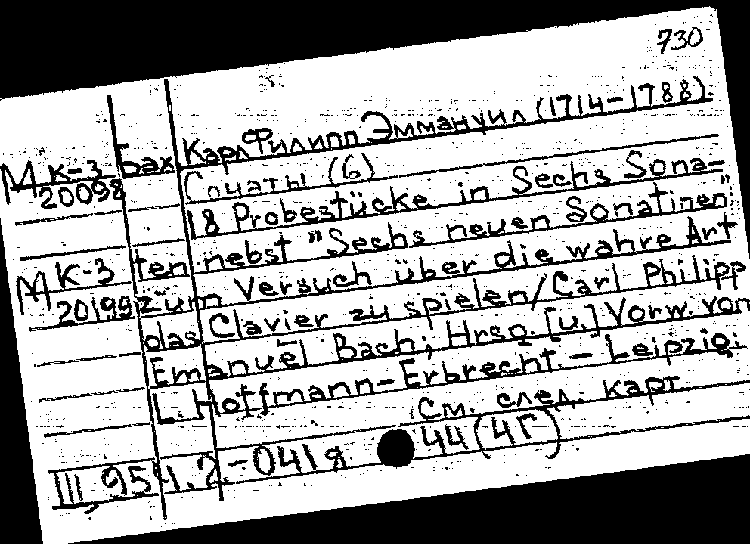 730
Бах, Карл Филипп Эммануил (1714-1788).
М К-3
20098
Сонаты (6)
18 Probestücke in Sechs Sona-
ten nebst "Sechs neuen Sonatinen"
М К-3
20199
zum Versuch über die wahre Art
das Clavier zu spielen/Carl Philipp
Emanuel Bach; Hrsg. [u.] Vorw. von
L. Hoffmann-Erbrecht. - Leipzig:
См. след. карт.
III, 95 ч.2.-041я 44(4Г)